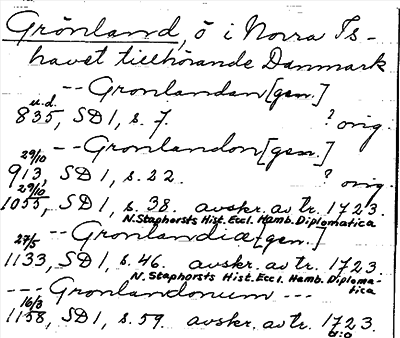 Grönland, ö i Norra Is-
havet tillhörande Danmark
-- Gronlandan [gen.]
u.d.
835, SD 1, s. 7. ? orig.
-- Gronlandon [gen.]
29/10
913, SD 1, s. 22. ? orig.
29/10
1055, SD 1, s. 38. avskr. av tr. 1723.
N. Staphorsts Hist. Eccl. Hamb. Diplomatica
-- Gronlandiæ [gen.]
27/5
1133, SD 1, s. 46. avskr. av tr. 1723.
N. Staphorsts Hist. Eccl. Hamb. Diploma-
tica
--- Gronlandonum ---
16/3
1158, SD 1, s. 59. avskr. av tr. 1723.
d:o